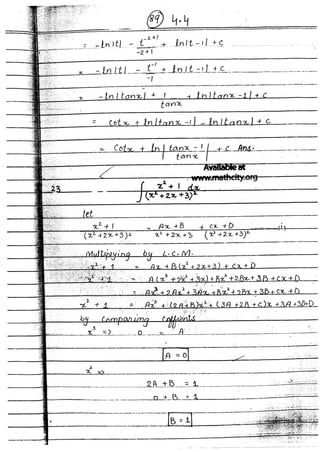 89 4.4
= -ln|t| - t^-2+1/-2+1 + ln|t-1| + c
= -ln|t| - t^-1/-1 + ln|t-1| + c
= -ln|tanx| + 1/tanx + ln|tanx -1| + c
= cotx + ln|tanx -1| - ln|tanx| + c
= Cotx + ln|tanx -1/tanx| + c Ans.
Available at
www.mathcity.org
23 ∫ x²+1/(x²+2x+3)² dx
let
x²+1/(x²+2x+3)² = Ax+B/x²+2x+3 + cx+D/(x²+2x+3)² i)
Multiplying by L.C.M.
x²+1 = Ax+B(x²+2x+3)+Cx+D
x²+1 = A(x³+2x²+3x)+Bx²+2Bx+3B+Cx+D
= Ax³+2Ax²+3Ax+Bx²+2Bx+3B+Cx+D
x²+1 = Ax³+(2A+B)x²+(3A+2B+C)x+3A+3B+D
by Comparing
x³ => 0 = A
A = 0
x² =>
2A + B = 1
0 + B = 1
B = 1